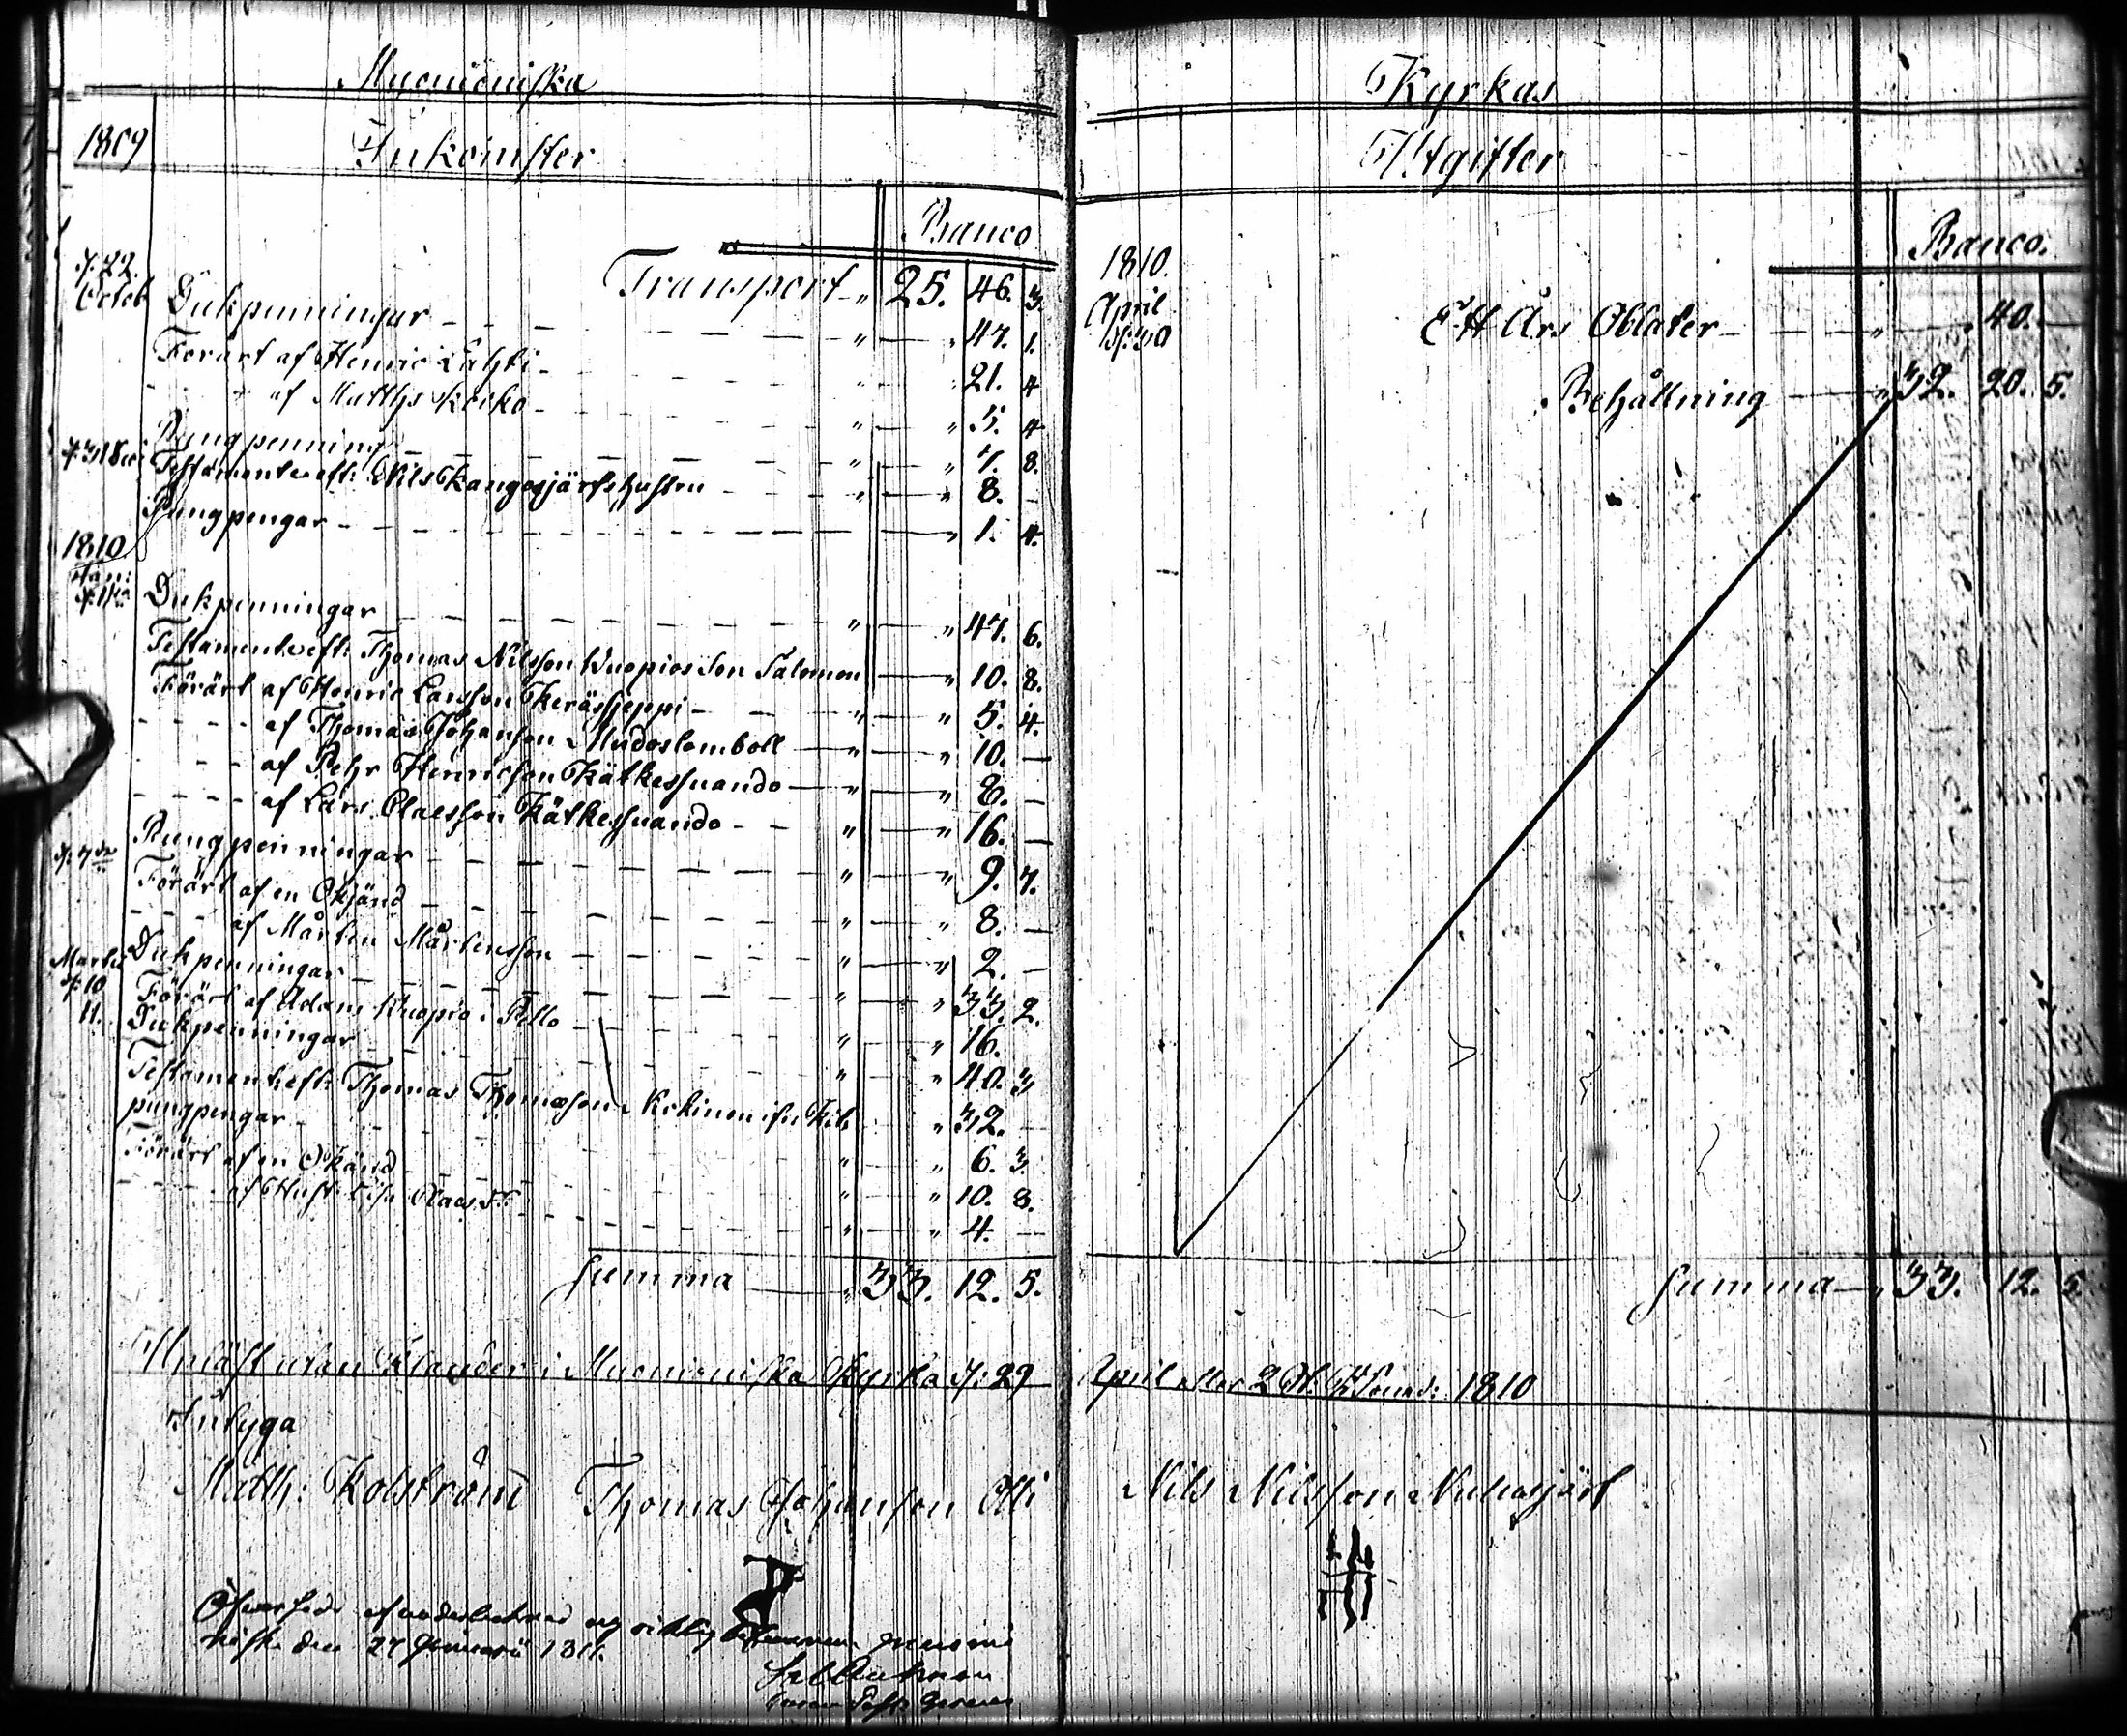 Muonioniska
1809 Inkomster
Banco
d. 22. Transport " 25. 46. 3.
Octob Dukpenningar " " 47. 1.
Förärt af Henric Lahti " " 21. 4
af Matths Keiko " " 5. 4
Pungpenning " " 7. 8.
Testamente eft: Nils Kangosjärfs hustru " " 8. –
Pungpengar " 1. 4.
1810
Jan:
Dukpenningar " " 47. 6.
Testamente eft: Thomas Nilsson Kuopios Son Salomon " 10. 8.
Förärt af Henric Larsson Kerässjeppi " " 5. 4.
af Thomas Johansson Mudoslombolo " " 10. –
af Pehr Henricsson Kätkessuando " " 8. –
af Lars Claesson Kätkessuando " " 16. –
Pungpenningar " " 9. 7.
Förärt af en Okjänd " " 8. –
af Mårten Mårtensson " " 2. –
Martii Dukpenningar " " 33. 2.
d. 10 Förärt af Adam Kuopio i Pello " " 16.
11. Dukpenningar " " 40. 3
Testamente eft: Thomas Thomasson " 32. –
pungpengar " " 6. 3.
Förärt af en Okänd " " 10. 8.
af Hust: Lisa Claes dr " " 4. –
Summa " 33. 12. 5.
Upläst utan Klander i Muonioniska Kyrka d. 29
Intyga
Matth: Kolström Thomas Johansson Olli
den 27 Januarii 1811.
Kyrkas
Utgifter
Banco.
1810.
April
d. 30 Ett Års Oblater " 40. –
Behållning " 32. 20. 5.
Summa " 33. 12. 5.
April eller 2 1810
Nils Nilsson